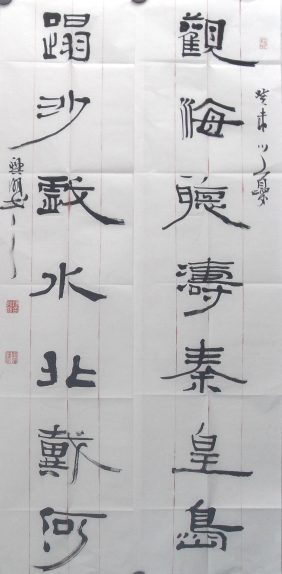 觀海聽濤秦皇島
蹋沙戲水北戴河